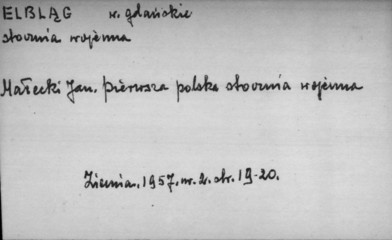 ELBLĄG w. gdańskie
stocznia wojenna
Małecki Jan. Pierwsza polska stocznia wojenna
Ziemia. 1957. nr. 2. str. 19-20.